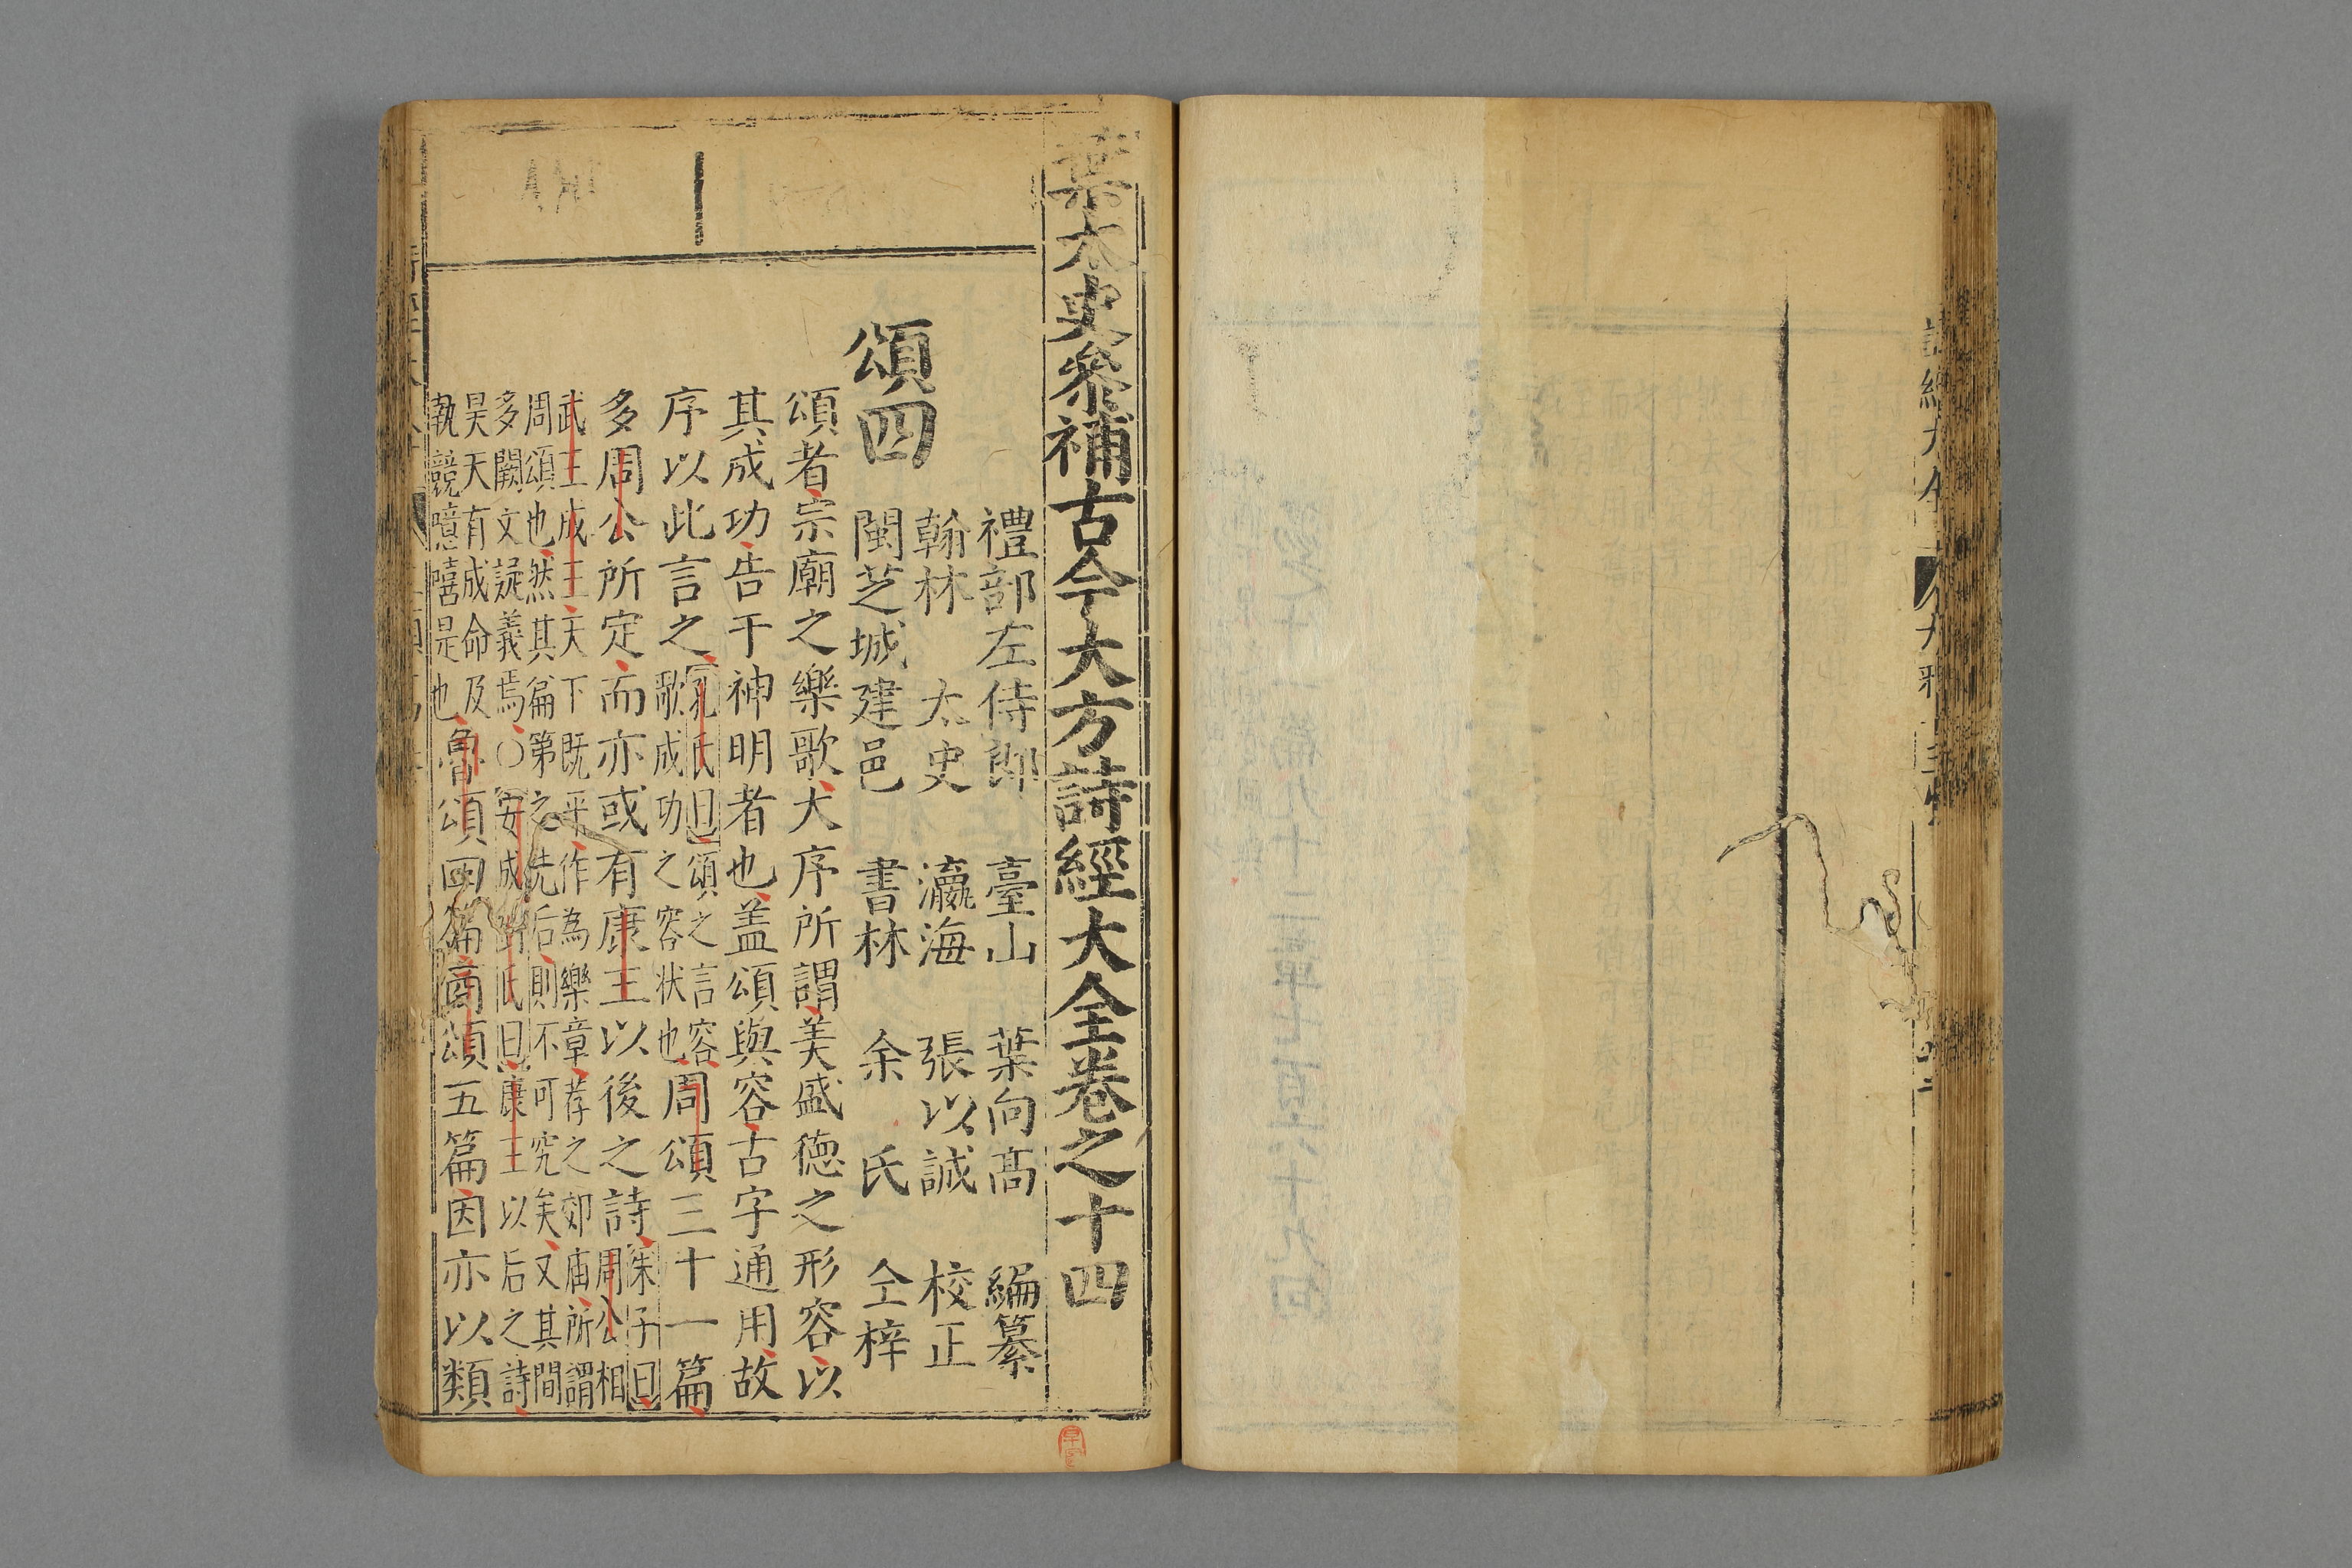 葉太史參補古今大方詩經大全卷之十四
禮部左侍郎 臺山 葉向高 編纂
翰林 太史 瀛海 張以誠 校正
閩芝城建邑 書林 余 氏 仝梓
頌四
頌者宗廟之樂歌大序所謂美盛德之形容以
其成功告于神明者也盖頌與容古字通用故
序以此言之孔氏曰頌之言容歌成功之容状也周頌三十一篇
多周公所定而亦或有康王以後之詩朱子曰周公相
武王成王天下既平作為樂章荐之郊庙所謂
周頌也然其篇第之先后則不可究矣又其間
多闕文疑義焉〇安成劉氏曰康王以后之詩
昊天有成命及
執競噫嘻是也魯頌四篇商頌五篇因亦以類